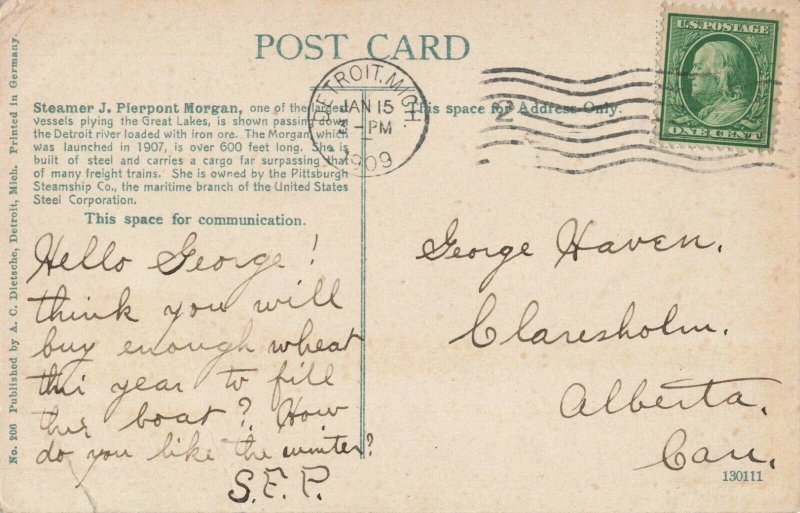 POST CARD
U.S. POSTAGE
ONE CENT
DETROIT, MICH.
JAN 15
-PM
1909
2
Steamer J. Pierpont Morgan, one of the largest
vessels plying the Great Lakes, is shown passing down
the Detroit river loaded with iron ore. The Morgan, which
was launched in 1907, is over 600 feet long. She is
built of steel and carries a cargo far surpassing that
of many freight trains. She is owned by the Pittsburgh
Steamship Co., the maritime branch of the United States
Steel Corporation.
This space for communication.
This space for Address Only.
Hello George!
think you will
buy enough wheat
this year to fill
this boat? How
do you like the winter?
S.E.P.
George Haven.
Claresholm.
Alberta.
Can.
130111
No. 206 Published by A. C. Dietsche, Detroit, Mich. Printed in Germany.